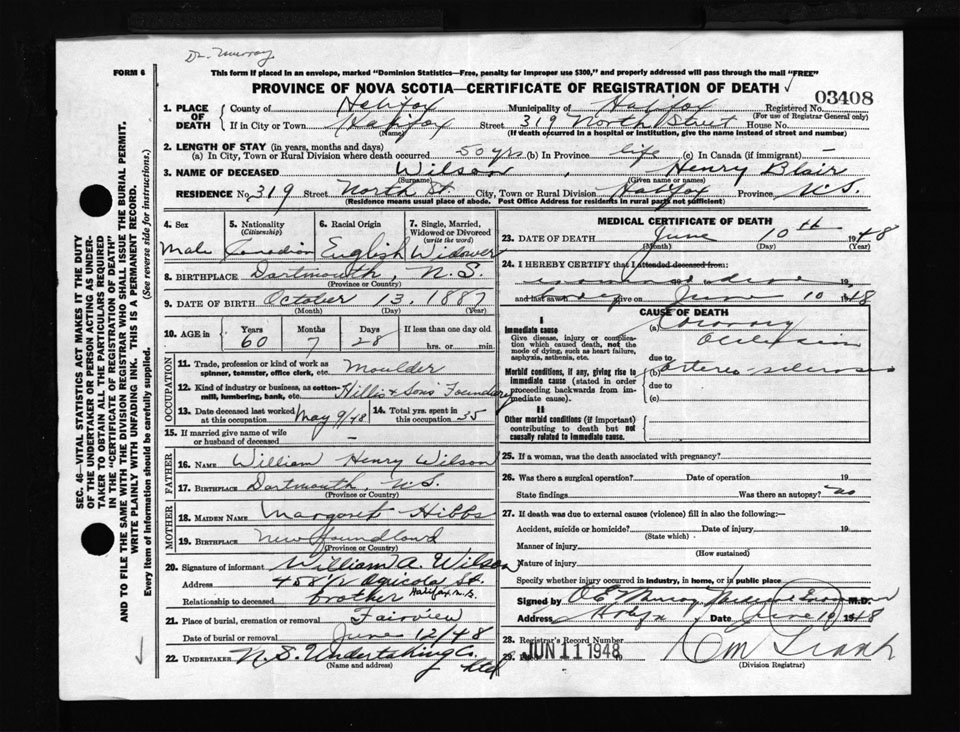 Dr. Murray
FORM 6
This form if placed in an envelope, marked "Dominion Statistics—Free, penalty for improper use $300," and properly addressed will pass through the mail "FREE"
PROVINCE OF NOVA SCOTIA—CERTIFICATE OF REGISTRATION OF DEATH
03408
1. PLACE OF DEATH County of Halifax Municipality of Halifax Registered No.
(For use of Registrar General only)
If in City or Town Halifax Street 319 North Street House No.
(Name) (If death occurred in a hospital or institution, give the name instead of street and number)
2. LENGTH OF STAY (in years, months and days)
(a) In City, Town or Rural Division where death occurred 50 yrs (b) In Province life (c) In Canada (if immigrant) —
3. NAME OF DECEASED Wilson, Henry Blair
(Surname) (Given name or names)
RESIDENCE No. 319 Street North St. City, Town or Rural Division Halifax Province N.S.
(Residence means usual place of abode. Post Office Address for residents in rural parts not sufficient)
4. Sex 5. Nationality (Citizenship) 6. Racial Origin 7. Single, Married, Widowed or Divorced (write the word)
Male Canadian English Widower
8. BIRTHPLACE Dartmouth, N.S.
(Province or Country)
9. DATE OF BIRTH October 13, 1887
(Month) (Day) (Year)
10. AGE in Years Months Days If less than one day old
60 7 28 hrs. or min.
OCCUPATION
11. Trade, profession or kind of work as spinner, teamster, office clerk, etc. Moulder
12. Kind of industry or business, as cotton-mill, lumbering, bank, etc. Hillis & Sons' Foundary
13. Date deceased last worked at this occupation May 9/48 14. Total yrs. spent in this occupation 35
15. If married give name of wife or husband of deceased —
FATHER
16. NAME William Henry Wilson
17. BIRTHPLACE Dartmouth, N.S.
(Province or Country)
MOTHER
18. MAIDEN NAME Margaret Hibbs
19. BIRTHPLACE Newfoundland
(Province or Country)
20. Signature of informant William A. Wilson
Address 458½ Agricola St. Halifax N.S.
Relationship to deceased brother
21. Place of burial, cremation or removal Fairview
Date of burial or removal June 12/48
22. UNDERTAKER N.S. Undertaking Co. Ltd
(Name and address)
MEDICAL CERTIFICATE OF DEATH
23. DATE OF DEATH June 10th 1948
(Month) (Day) (Year)
24. I HEREBY CERTIFY that I attended deceased from:
and last saw h alive on June 10 1948
CAUSE OF DEATH
I
Immediate cause
Give disease, injury or complication which caused death, not the mode of dying, such as heart failure, asphyxia, asthenia, etc.
(a) Coronary Occlusion
due to
Morbid conditions, if any, giving rise to immediate cause (stated in order proceeding backwards from immediate cause).
(b) arterio-sclerosis
due to
(c)
II
Other morbid conditions (if important) contributing to death but not causally related to immediate cause.
25. If a woman, was the death associated with pregnancy?
26. Was there a surgical operation? Date of operation 19
State findings Was there an autopsy? no
27. If death was due to external causes (violence) fill in also the following:—
Accident, suicide or homicide? Date of injury 19
(State which)
Manner of injury
(How sustained)
Nature of injury
Specify whether injury occurred in industry, in home, or in public place
Signed by O E Murray Medical Examiner M.D.
Address Halifax Date June 10 1948
28. Registrar's Record Number
29. JUN 11 1948
(Division Registrar)
SEC. 46—VITAL STATISTICS ACT MAKES IT THE DUTY
OF THE UNDERTAKER OR PERSON ACTING AS UNDER-
TAKER TO OBTAIN ALL THE PARTICULARS REQUIRED
IN THE "CERTIFICATE OF REGISTRATION OF DEATH"
AND TO FILE THE SAME WITH THE DIVISION REGISTRAR WHO SHALL ISSUE THE BURIAL PERMIT.
WRITE PLAINLY WITH UNFADING INK. THIS IS A PERMANENT RECORD.
Every item of information should be carefully supplied. (See reverse side for instructions.)